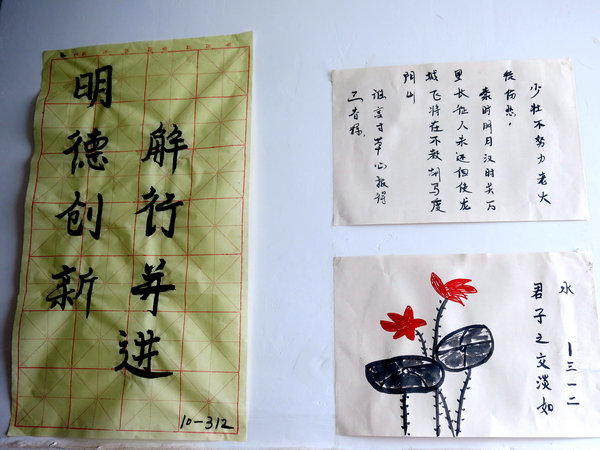 明德创新
解行并进
10-312
少壮不努力老大
徒伤悲。
秦时明月汉时关万
里长征人未还但使龙
城飞将在不教胡马度
阴山
谁言寸草心报得
三春晖。
君子之交淡如
水
一三一二